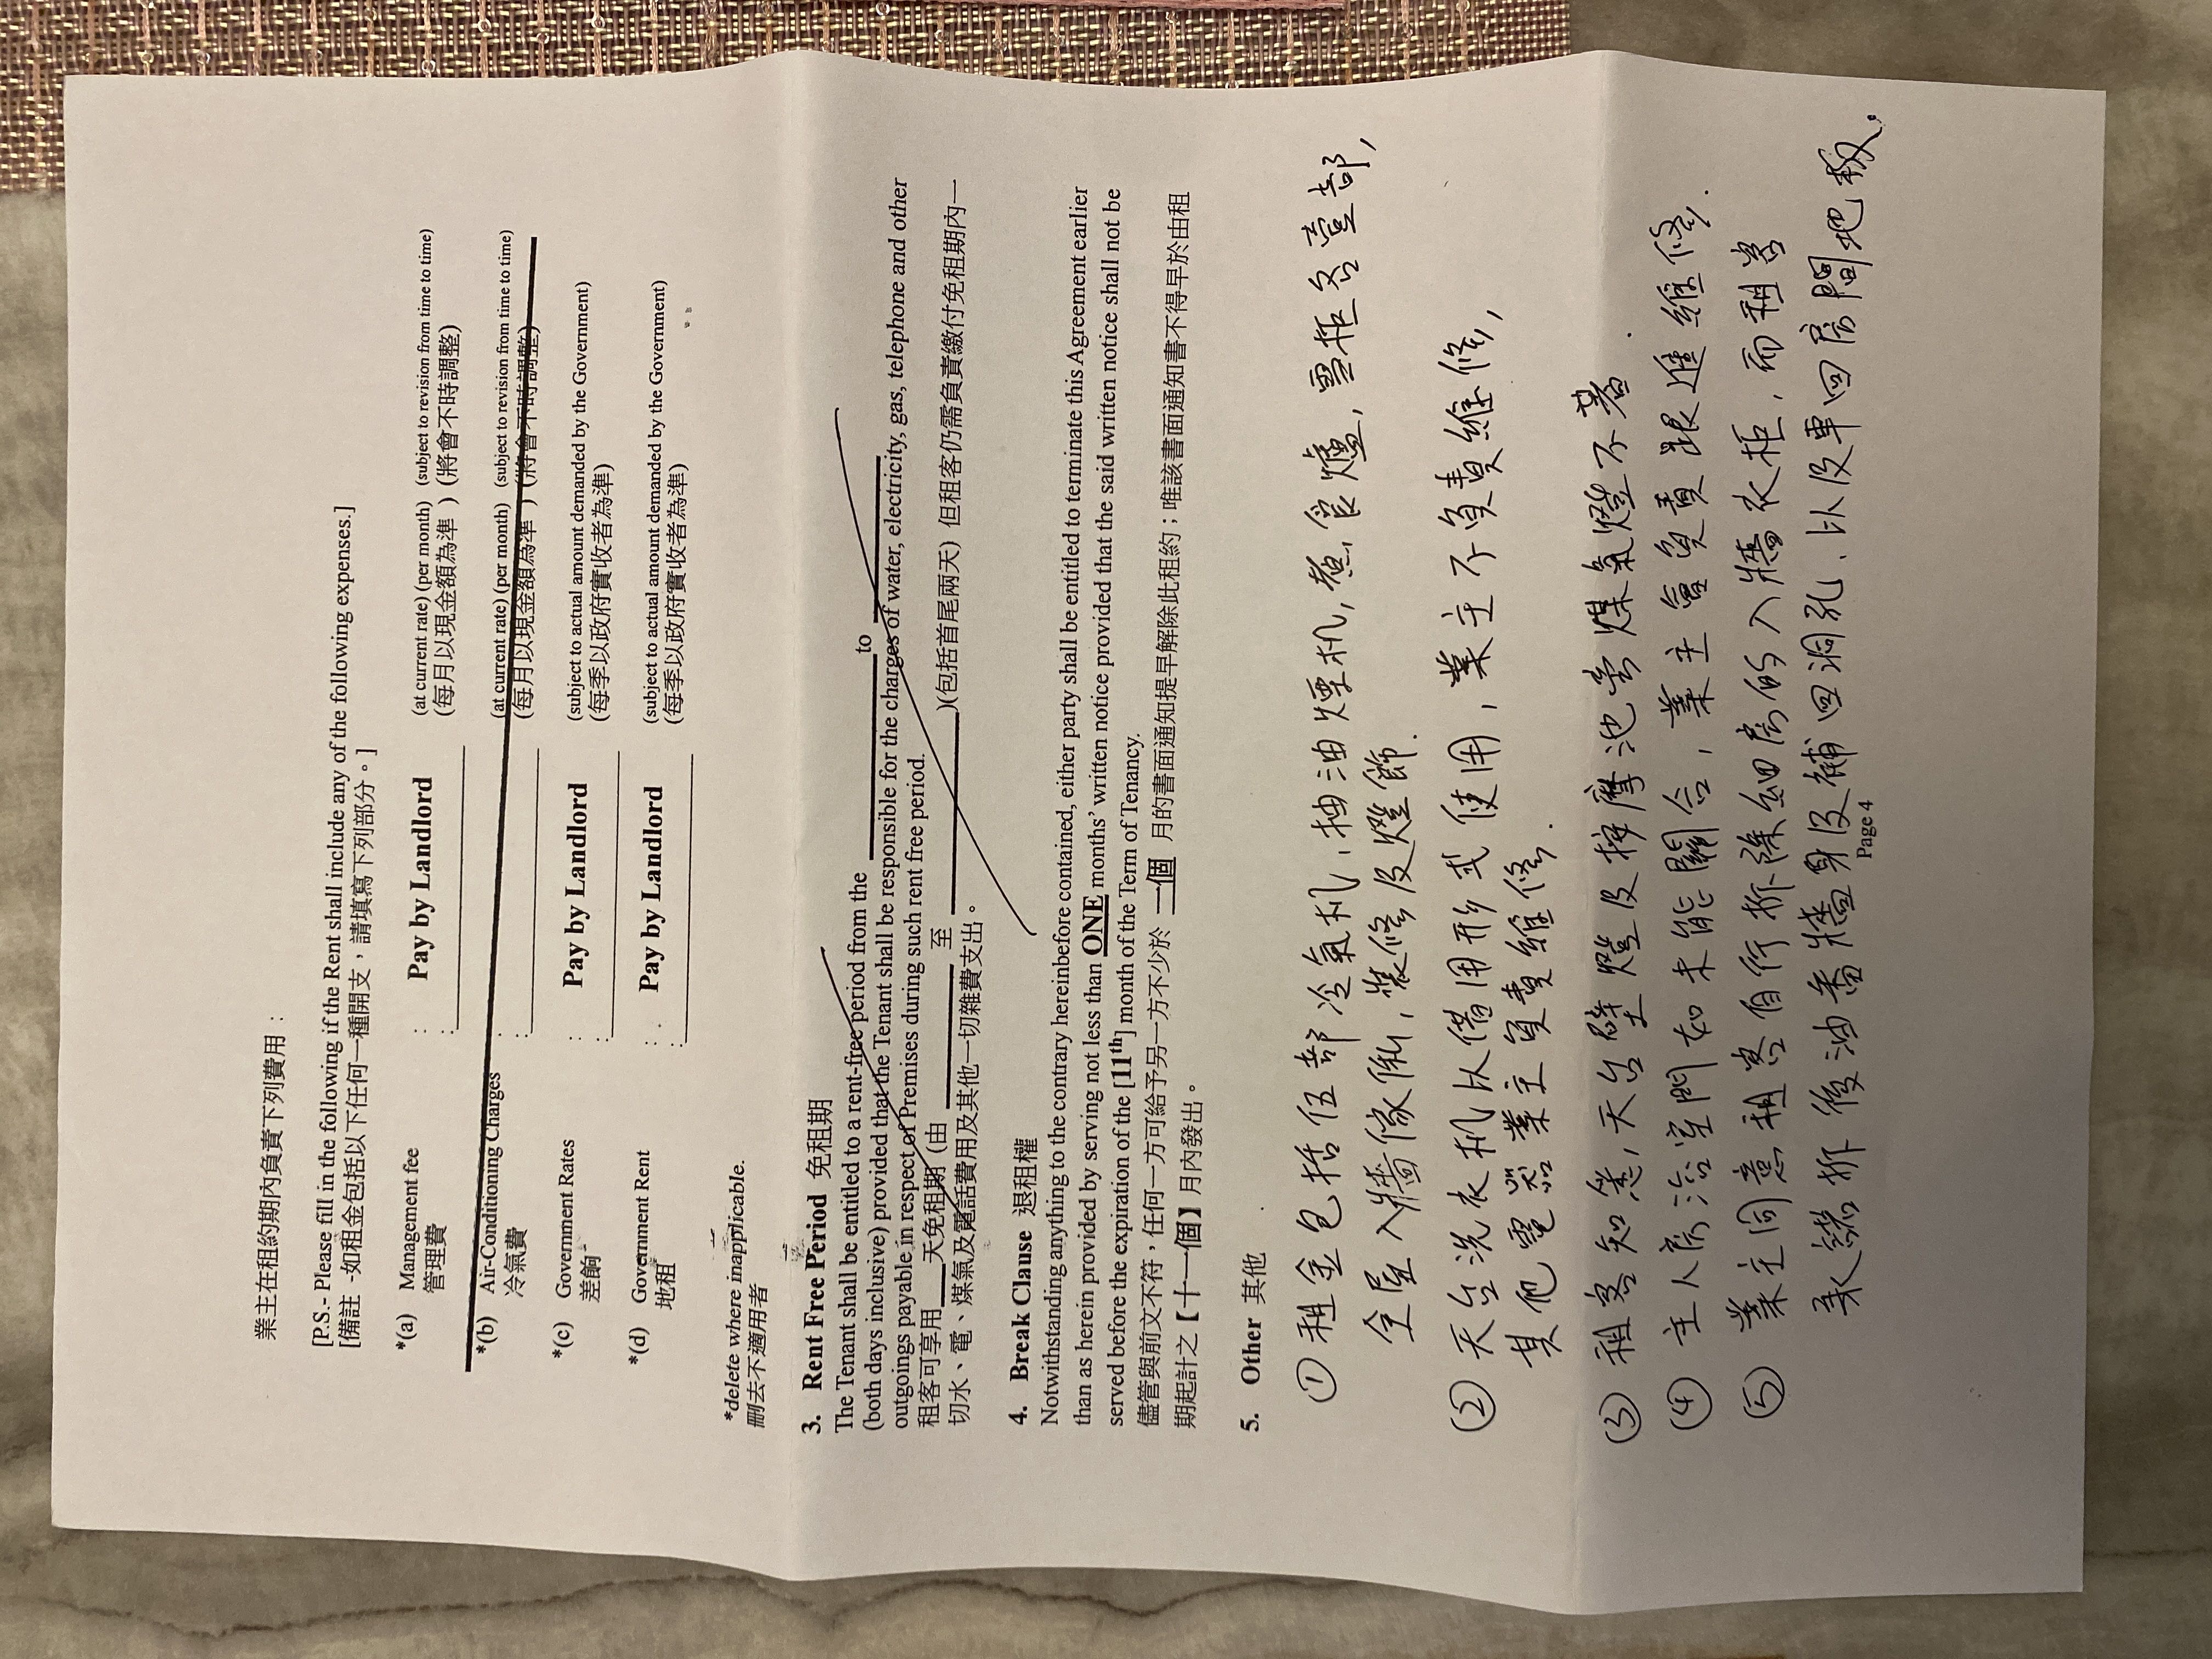 業主在租約期內負責下列費用：
[P.S.- Please fill in the following if the Rent shall include any of the following expenses.]
[備註 -如租金包括以下任何一種開支，請填寫下列部分。]
*(a) Management fee : Pay by Landlord (at current rate) (per month) (subject to revision from time to time)
管理費 : (每月以現金額為準 ) (將會不時調整)
*(b) Air-Conditioning Charges (at current rate) (per month) (subject to revision from time to time)
冷氣費 : (每月以現金額為準 ) (將會不時調整)
*(c) Government Rates : Pay by Landlord (subject to actual amount demanded by the Government)
差餉 : (每季以政府實收者為準)
*(d) Government Rent : Pay by Landlord (subject to actual amount demanded by the Government)
地租 : (每季以政府實收者為準)
*delete where inapplicable.
刪去不適用者
3. Rent Free Period 免租期
The Tenant shall be entitled to a rent-free period from the to
(both days inclusive) provided that the Tenant shall be responsible for the charges of water, electricity, gas, telephone and other
outgoings payable in respect of Premises during such rent free period.
租客可享用 天免租期 (由 至 )(包括首尾兩天) 但租客仍需負責繳付免租期內一
切水、電、煤氣及電話費用及其他一切雜費支出。
4. Break Clause 退租權
Notwithstanding anything to the contrary hereinbefore contained, either party shall be entitled to terminate this Agreement earlier
than as herein provided by serving not less than ONE months' written notice provided that the said written notice shall not be
served before the expiration of the [11th] month of the Term of Tenancy.
儘管與前文不符，任何一方可給予另一方不少於 一個 月的書面通知提早解除此租約；唯該書面通知書不得早於由租
期起計之【十一個】月內發出。
5. Other 其他
① 租金包括伍部冷氣机, 抽油煙机, 煮食爐, 雪柜各壹部,
全屋入牆傢俬, 裝修及燈飾.
② 天台洗衣机以借用形式使用, 業主不負責維修,
其他電器業主負責維修.
③ 租客知悉, 天台壁燈及按摩池旁煤氣燈不著.
④ 主人房浴室門如未能關合, 業主會負責跟進維修.
⑤ 業主同意租客自行拆除細房的入牆衣柜, 而租客
承諾拆後油番牆身及補回洞孔, 以及車回房間地板.
Page 4